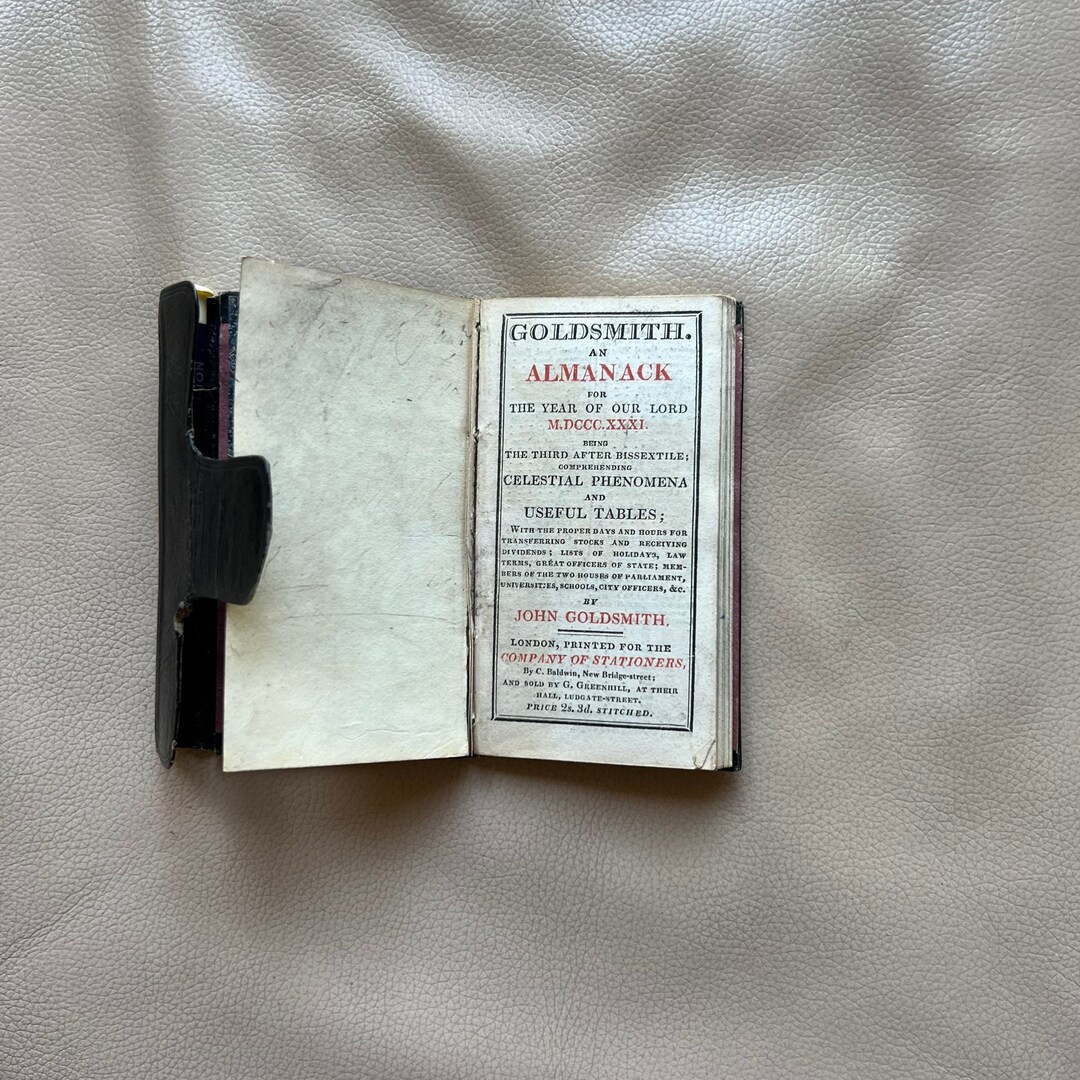 ION
GOLDSMITH.
AN
ALMANACK
FOR
THE YEAR OF OUR LORD
M.DCCC.XXXI.
BEING
THE THIRD AFTER BISSEXTILE;
COMPREHENDING
CELESTIAL PHENOMENA
AND
USEFUL TABLES;
WITH THE PROPER DAYS AND HOURS FOR
TRANSFERRING STOCKS AND RECEIVING
DIVIDENDS; LISTS OF HOLIDAYS, LAW
TERMS, GREAT OFFICERS OF STATE; MEM-
BERS OF THE TWO HOUSES OF PARLIAMENT,
UNIVERSITIES, SCHOOLS, CITY OFFICERS, &C.
BY
JOHN GOLDSMITH.
LONDON, PRINTED FOR THE
COMPANY OF STATIONERS,
By C. Baldwin, New Bridge-street;
AND SOLD BY G. GREENHILL, AT THEIR
HALL, LUDGATE-STREET.
PRICE 2s. 3d. STITCHED.